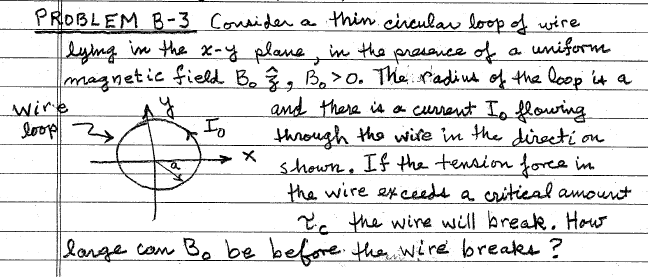 PROBLEM B-3 Consider a thin circular loop of wire
lying in the x-y plane, in the presence of a uniform
magnetic field B₀ ẑ, B₀>0. The radius of the loop is a
and there is a current I₀ flowing
through the wire in the direction
shown. If the tension force in
the wire exceeds a critical amount
τc the wire will break. How
large can B₀ be before the wire breaks?
wire
loop
y
I₀
x
a